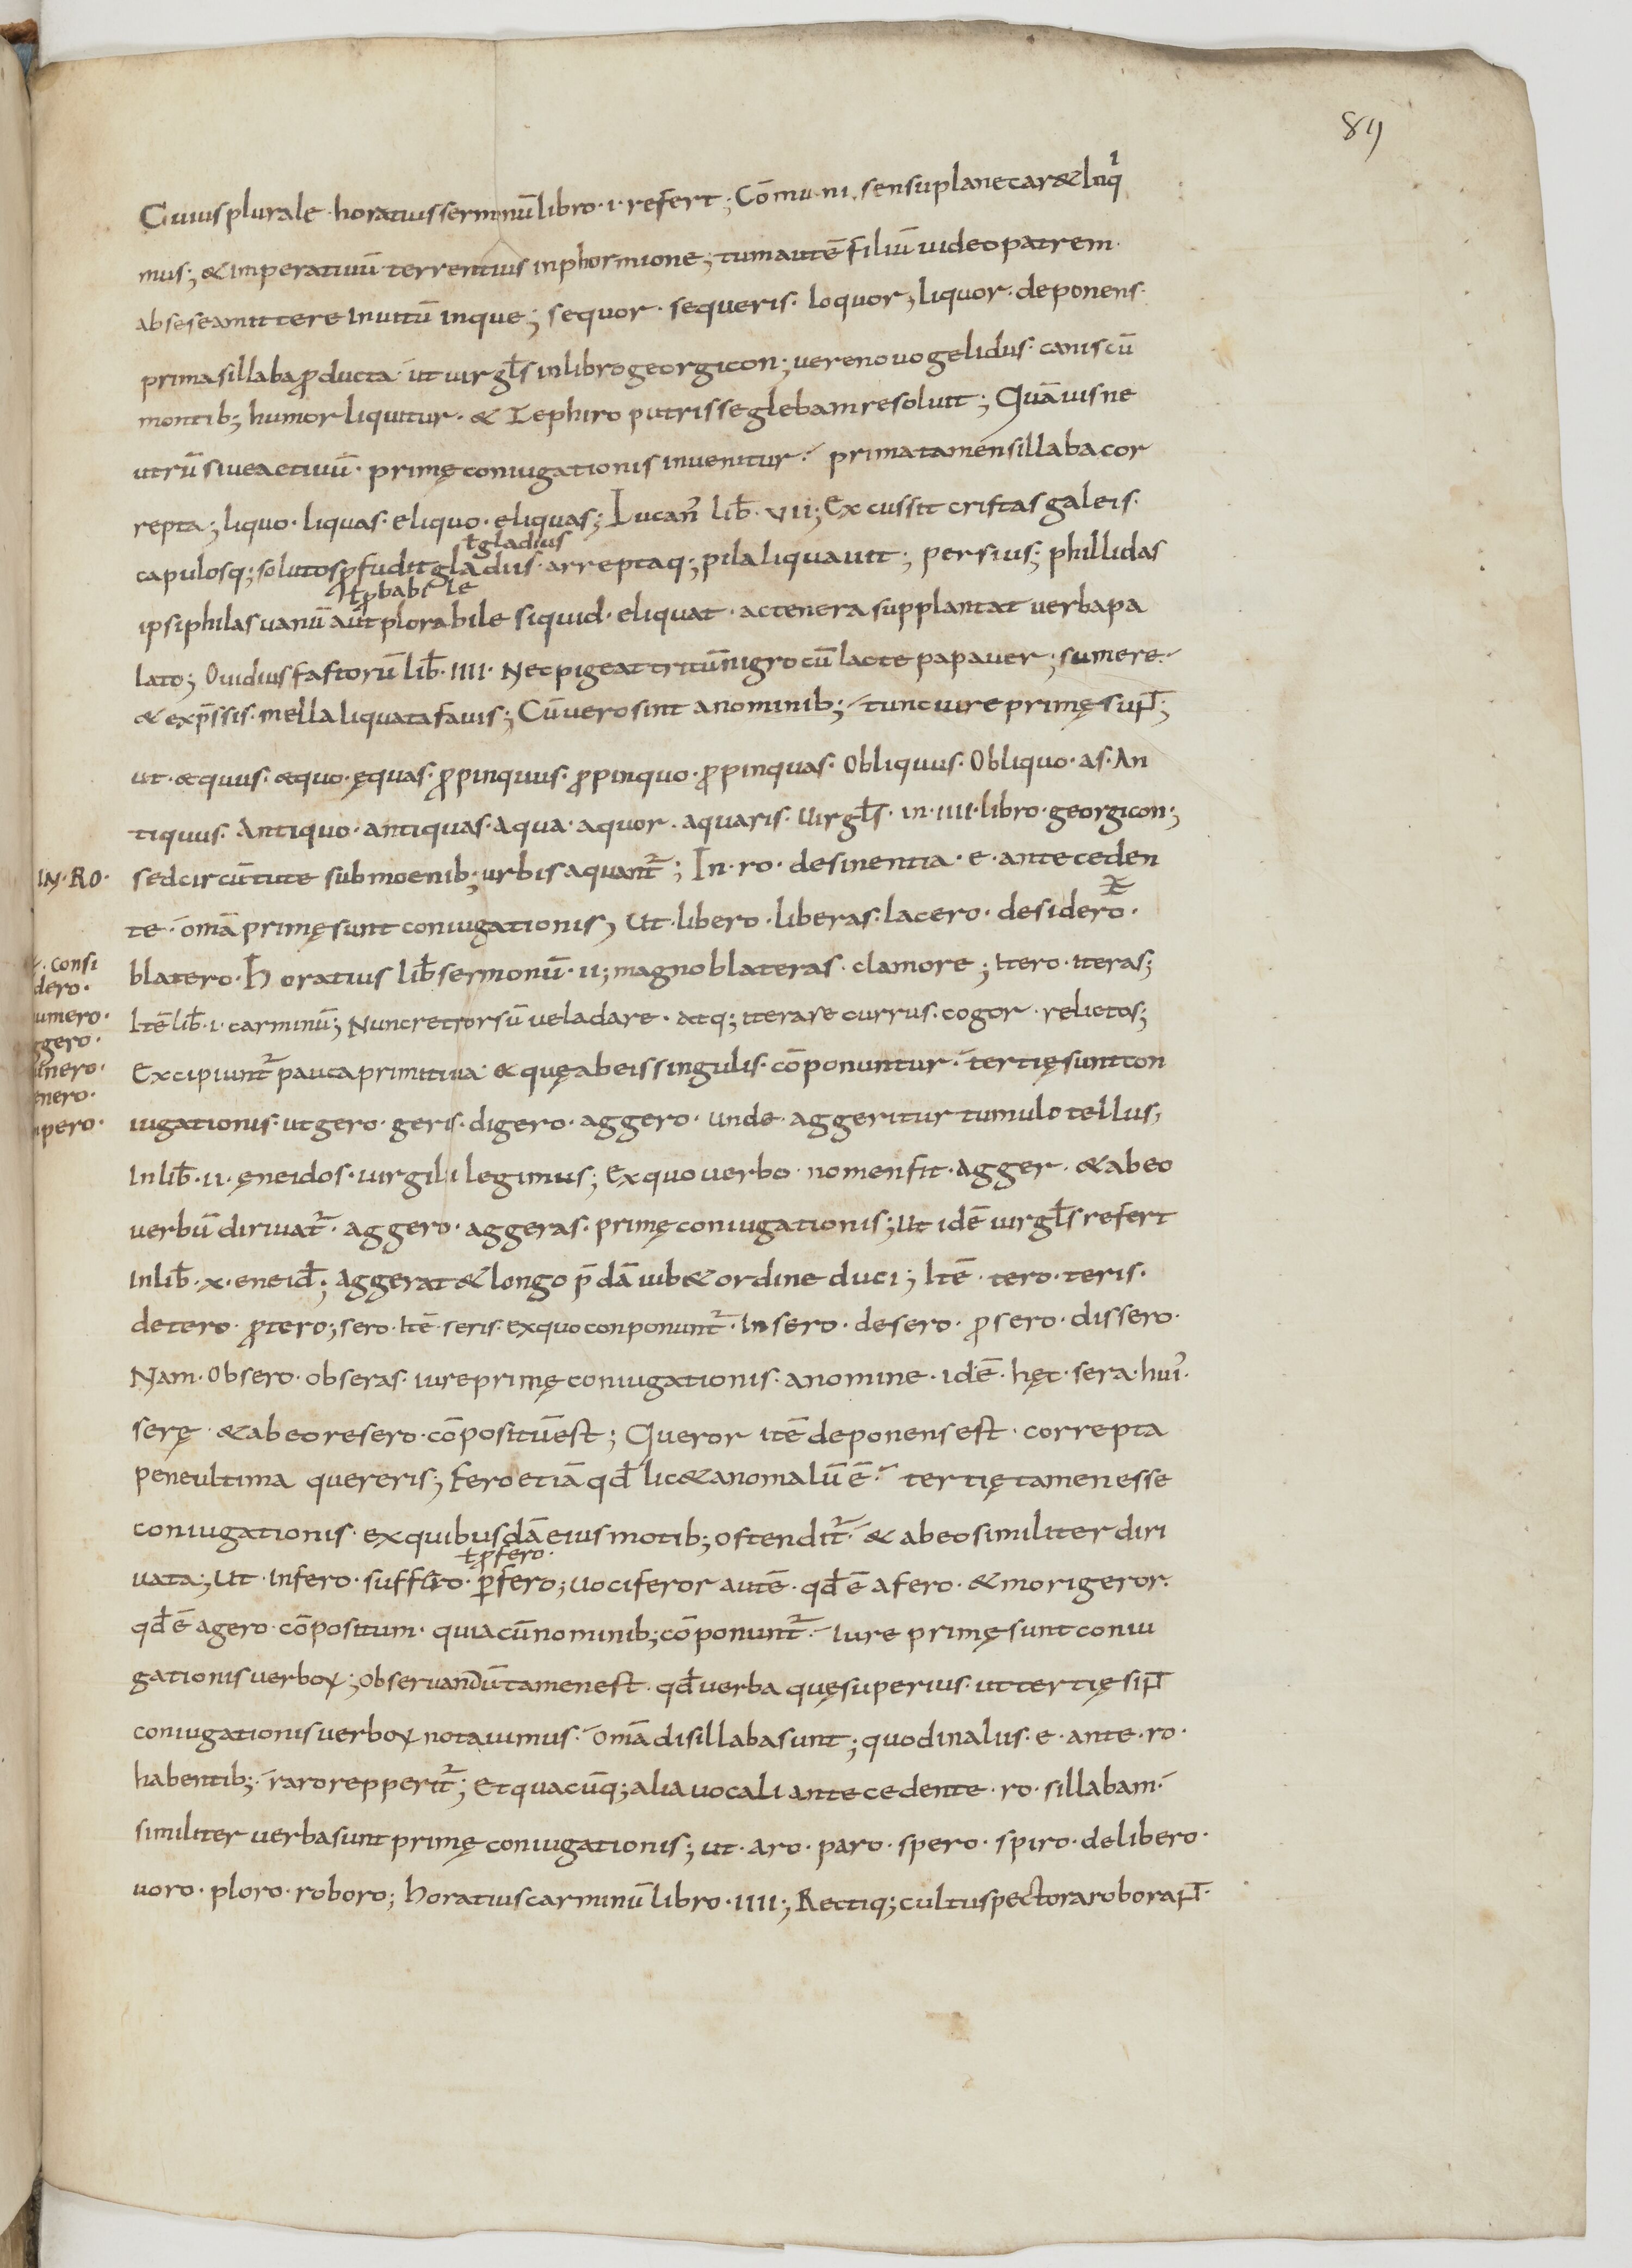 89
Cuius plurale · horatius sermonū libro · i · refert ; Cōmuni · sensu plane car& inq
i
mus ; & imperatiuū terrentius in phormione ; tum autē filiū uideo patrem ·
ab sese amittere inuitū inque ; sequor · sequeris · loquor , liquor · deponens ·
prima sillaba ꝓducta · ut uirgl̄s in libro georgicon ; uere nouo gelidus · canis cū
montib; humor liquitur · & Zephiro putris se glebam resoluit ; Quāuis ne
utrū siue actiuū · primę coniugationis inuenitur · prima tamen sillaba cor
repta ; liquo · liquas · eliquo · eliquas ; Lucan᾽ lib̄ · vii ; Excussit cristas galeis ·
ł gladius
capulosq; solutos ꝑfudit gladiis · arreptaq; pila liquauit ; persius ; phillidas
ł ꝓbabile
ipsiphilas uanū aut plorabile siquid · eliquat · ac tenera supplantat uerba pa
lato ; Ouidius fastorū lib̄ · IIII · Nec pigeat tritū nigro cū lacte papauer ; sumere ·
& exp̄ssis · mella liquata fauis ; Cū uero sint a nominib; · tunc iure primę supt̄ ;
ut · æquus · æquo · ęquas · ꝓpinquus · ꝓpinquo · ꝓpinquas · Obliquus · Obliquo · as · An
tiquus · Antiquo · antiquas · Aqua · aquor · aquaris · Uirgl̄s · in · IIII · libro · georgicon ;
IN · RO ·
sed circū tute sub moenib; urbis aquant᷑ ; In · ro · desinentia · e · anteceden
te · om̄a primę sunt coniugationis , Ut · libero · liberas · lacero · desidero ·
· consi
dero ·
umero ·
ggero ·
nero ·
nero ·
pero ·
blatero · Horatius lib̄ sermonū · ii ; magno blateras · clamore ; Itero · iteras ;
Itē lib̄ · i · carminū ; Nunc retrorsū uela dare · atq; iterare currus · cogor · relictos ;
Excipiunt᷑ pauca primitiua · & quę ab eis singulis · cōponuntur · tertię sunt con
iugationis · ut gero · geris · digero · aggero · unde · aggeritur tumulo tellus ,
In lib̄ · ii · ęneidos · uirgili legimus ; Ex quo uerbo · nomen fit · Agger · & ab eo
uerbū diriuat᷑ · aggero · aggeras · primę coniugationis ; Ut idē uirgl̄s refert
In lib̄ · x · eneid̄ ; Aggerat & longo p̄dā iub& ordine duci ; Itē · tero · teris ·
detero · ꝓtero ; sero · Itē · seris · ex quo conponunt᷑ · Insero · desero · ꝓsero · dissero ·
Nam · Obsero · obseras · iure primę coniugationis · a nomine · idē · hęc · sera · hui᾽ ·
serę · & ab eo resero · cōpositū est ; Queror itē deponens est · correpta
peneultima quereris ; Fero etiā qd̄ lic& anomalū ē · tertię tamen esse
coniugationis · ex quibusdā eius motib; ostendit᷑ · & ab eo similiter diri
ł ꝓfero ·
uata ; Ut · Infero · suffero · ꝑfero ; uociferor autē · qd̄ ē a fero · & morigeror ·
qd̄ ē a gero · cōpositum · quia cū nominib; cōponunt᷑ · iure primę sunt coniu
gationis uerboꝝ ; Obseruandū tamen est · qd̄ uerba quę superius · ut tertię sipt̄
coniugationis uerboꝝ notauimus · om̄a disillaba sunt ; quod in aliis · e · ante · ro ·
habentib; · raro repperit᷑ ; Et quacūq; alia uocali antecedente · ro · sillabam ·
similiter uerba sunt primę coniugationis ; ut · aro · paro · spero · spiro · delibero ·
uoro · ploro · roboro ; horatius carminū libro · IIII ; Rectiq; cultus pectora roborant̄ ·